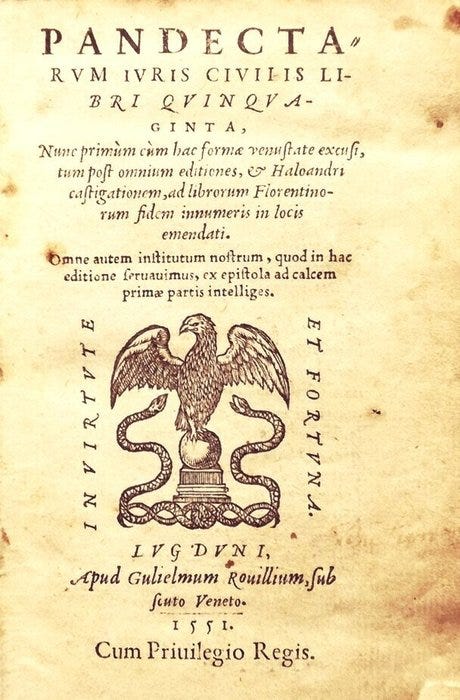 PANDECTA〃
RVM IVRIS CIVILIS LI-
BRI QVINQVA-
GINTA,
Nunc primùm cùm hac formæ venustate excusi,
tum post omnium editiones, & Haloandri
castigationem, ad librorum Florentino-
rum fidem innumeris in locis
emendati.
Omne autem institutum nostrum, quod in hac
editione seruauimus, ex epistola ad calcem
primæ partis intelliges.
IN VIRTVTE
ET FORTVNA.
LVGDVNI,
Apud Gulielmum Rouillium, sub
scuto Veneto.
1551.
Cum Priuilegio Regis.